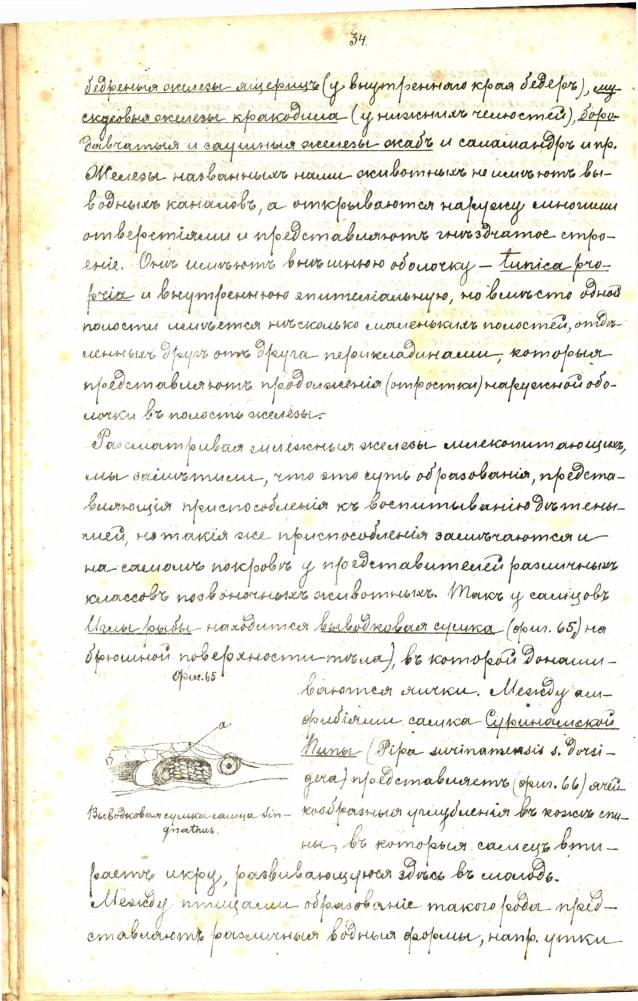 34.
бедреныя железы ящерицъ (у внутренняго края бедеръ), му-
скусовыя железы крокодила (у нижнихъ челюстей), боро-
давчатыя и заушныя железы жабъ и саламандръ и пр.
Железы названныхъ нами животныхъ не имѣютъ вы-
водныхъ каналовъ, а открываются наружу многими
отверстіями и представляютъ гнѣздчатое стро-
еніе. Онѣ имѣютъ внѣшнюю оболочку – tunica pro-
pria и внутреннюю эпителіальную, но вмѣсто одной
полости имѣется нѣсколько маленькихъ полостей, отдѣ-
ленныхъ другъ отъ друга перикладинами, которыя
представляютъ продолженія (отростки) наружной обо-
лочки въ полость железы.
Разсматривая млежныя железы млекопитающихъ,
мы замѣтили, что это суть образованія, предста-
вляющія приспособленія къ воспитыванію дѣтены-
шей, но такія же приспособленія замѣчаются и
на самомъ покровѣ у представителей различныхъ
классовъ позвоночныхъ животныхъ. Такъ у самцовъ
Иглы рыбы находится выводковая сумка (фиг. 65,) на
брюшной поверхности тѣла), въ которой донаши-
фиг. 65
a.
Выводковая сумка самца Sin-
gnathus.
ваются яички. Между ам-
фибіями самка Суринамской
Пипы (Pipa surinamensis s. dorsi-
gera) представляетъ (фиг. 66) ячей-
кообразныя углубленія въ кожѣ спи-
ны, въ которыя самецъ вти-
раетъ икру, развивающуюся здѣсь въ молодь.
Между птицами образованіе такого рода пред-
ставляютъ различныя водныя формы, напр. утки